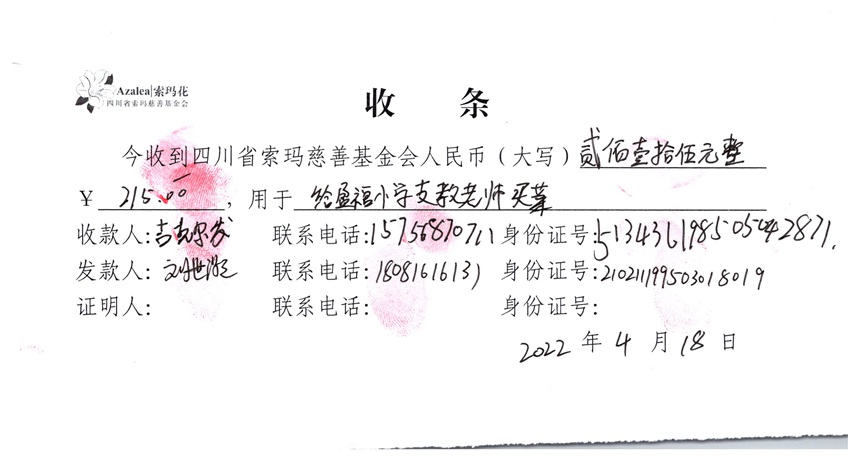 Azalea|索玛花
四川省索玛慈善基金会
收 条
今收到四川省索玛慈善基金会人民币（大写）贰佰壹拾伍元整
¥ 215.00 ，用于 给盈福小学支教老师买菜
收款人:吉克尔发 联系电话:15756870711 身份证号:513436198505042871.
发款人: 联系电话:18081616131 身份证号:210211199503018019
证明人: 联系电话: 身份证号:
2022 年 4 月 18 日